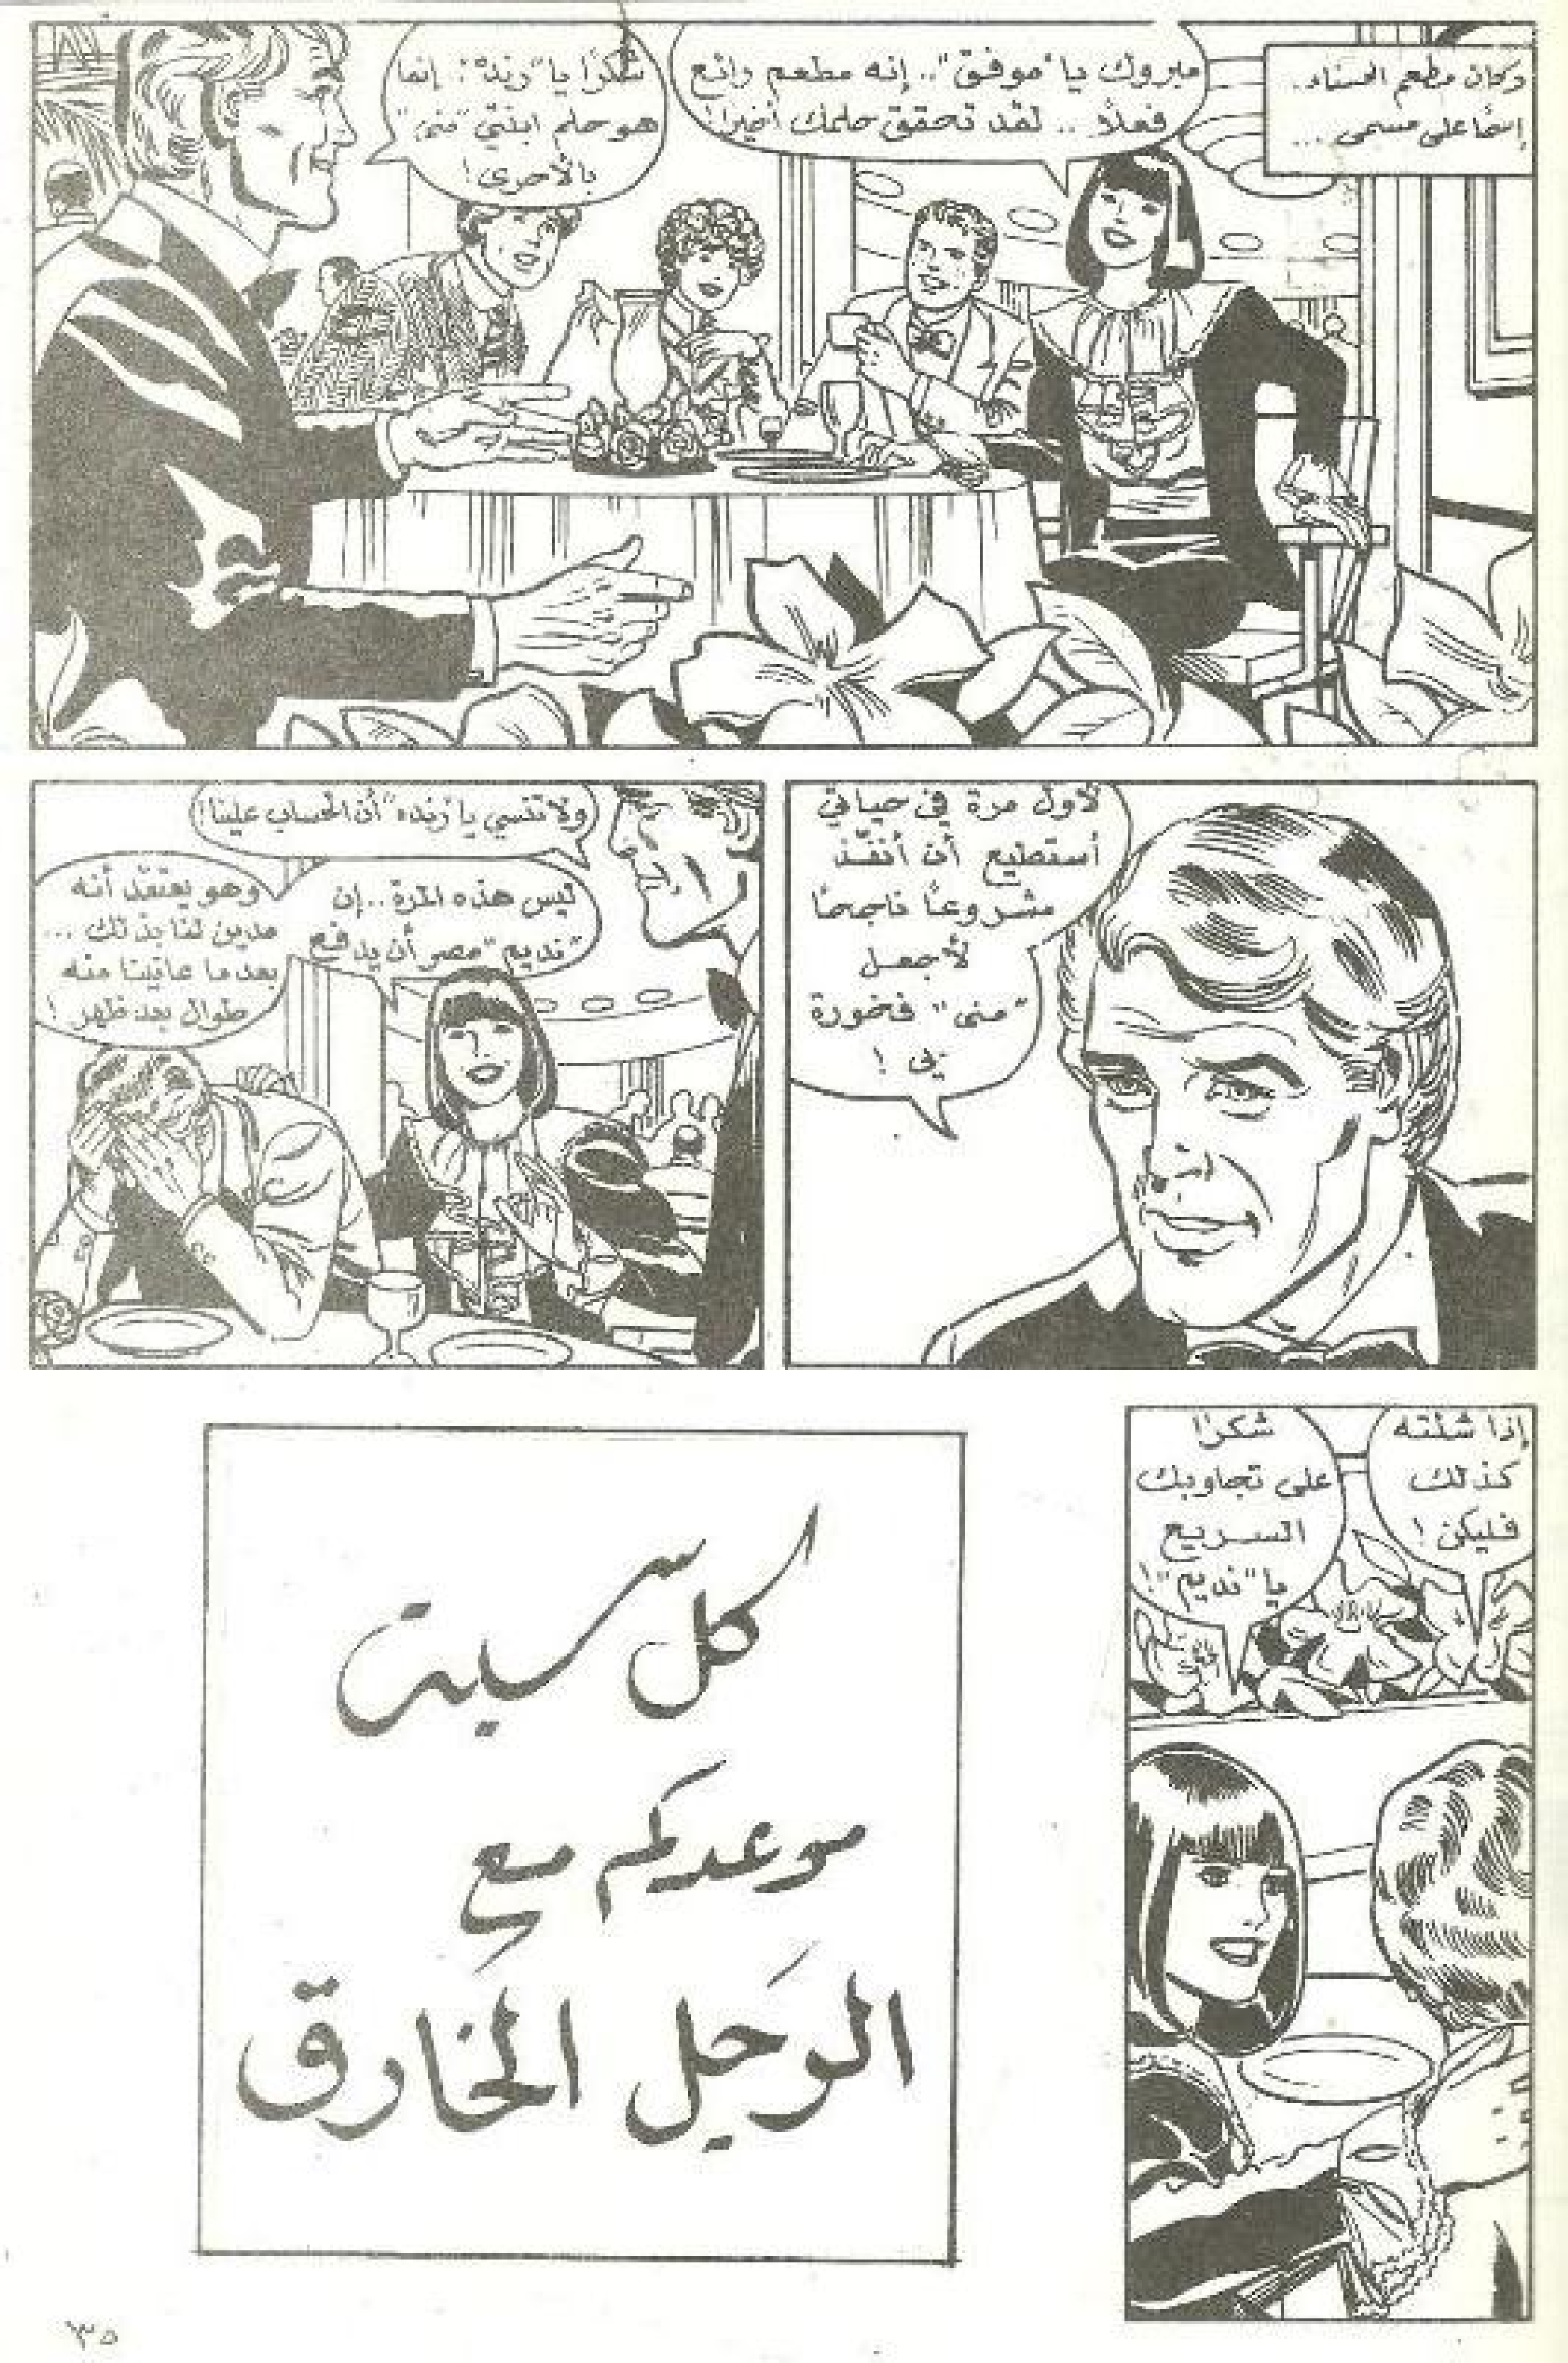 وكان مطعم الحسناء..
إسمًا على مسمى ...
مبروك يا "موفق".. إنه مطعم رائع
فعلاً .. لقد تحقق حلمك أخيرًا!
شكرًا يا "رنده"! إنما
هو حلم ابنتي "منى"
بالأحرى!
لأول مرة في حياتي
أستطيع أن أنفّذ
مشروعًا ناجحًا
لأجعل
"منى" فخورة
بي !
ولا تنسي يا "رنده" أن الحساب علينا!
ليس هذه المرة.. إن
"نديم" مصر أن يدفع
وهو يعتقد أنه
مدين لنا بذلك ...
بعدما عانينا منه
طوال بعد ظهر !
إذا شئته
كذلك
فليكن !
شكرًا
على تجاوبك
السريع
يا "نديم"!
كل سبت
موعدكم مع
الرجل الخارق
٣٥